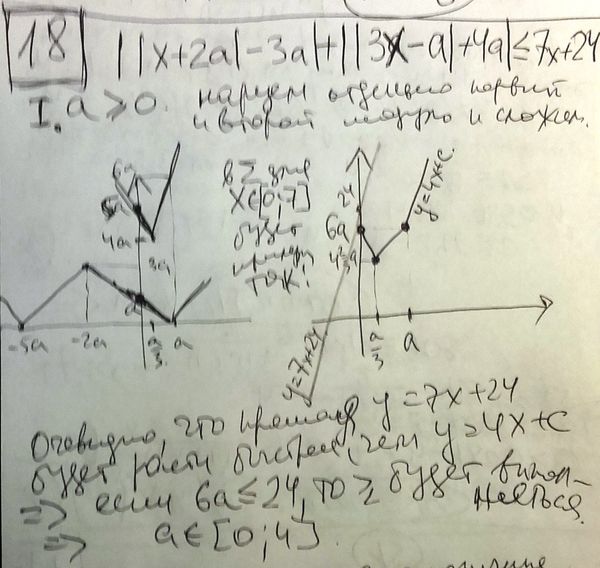 18 ||x+2a|-3a|+||3x-a|+4a|≤7x+24
I. a≥0. нарисуем отдельно первый
и второй модули и сложим.
6a
5a
4a
3a
a
-5a
-2a
a/3
a
в Σ для
x∈[0;7]
будет
ниже
24
6a
4⅓a
a/3
a
y=7x+24
y=4x+c.
Очевидно, что прямая y=7x+24
будет расти быстрей, чем y=4x+c
⇒ если 6a≤24, то ≥ будет выпол-
няться.
⇒ a∈[0;4].